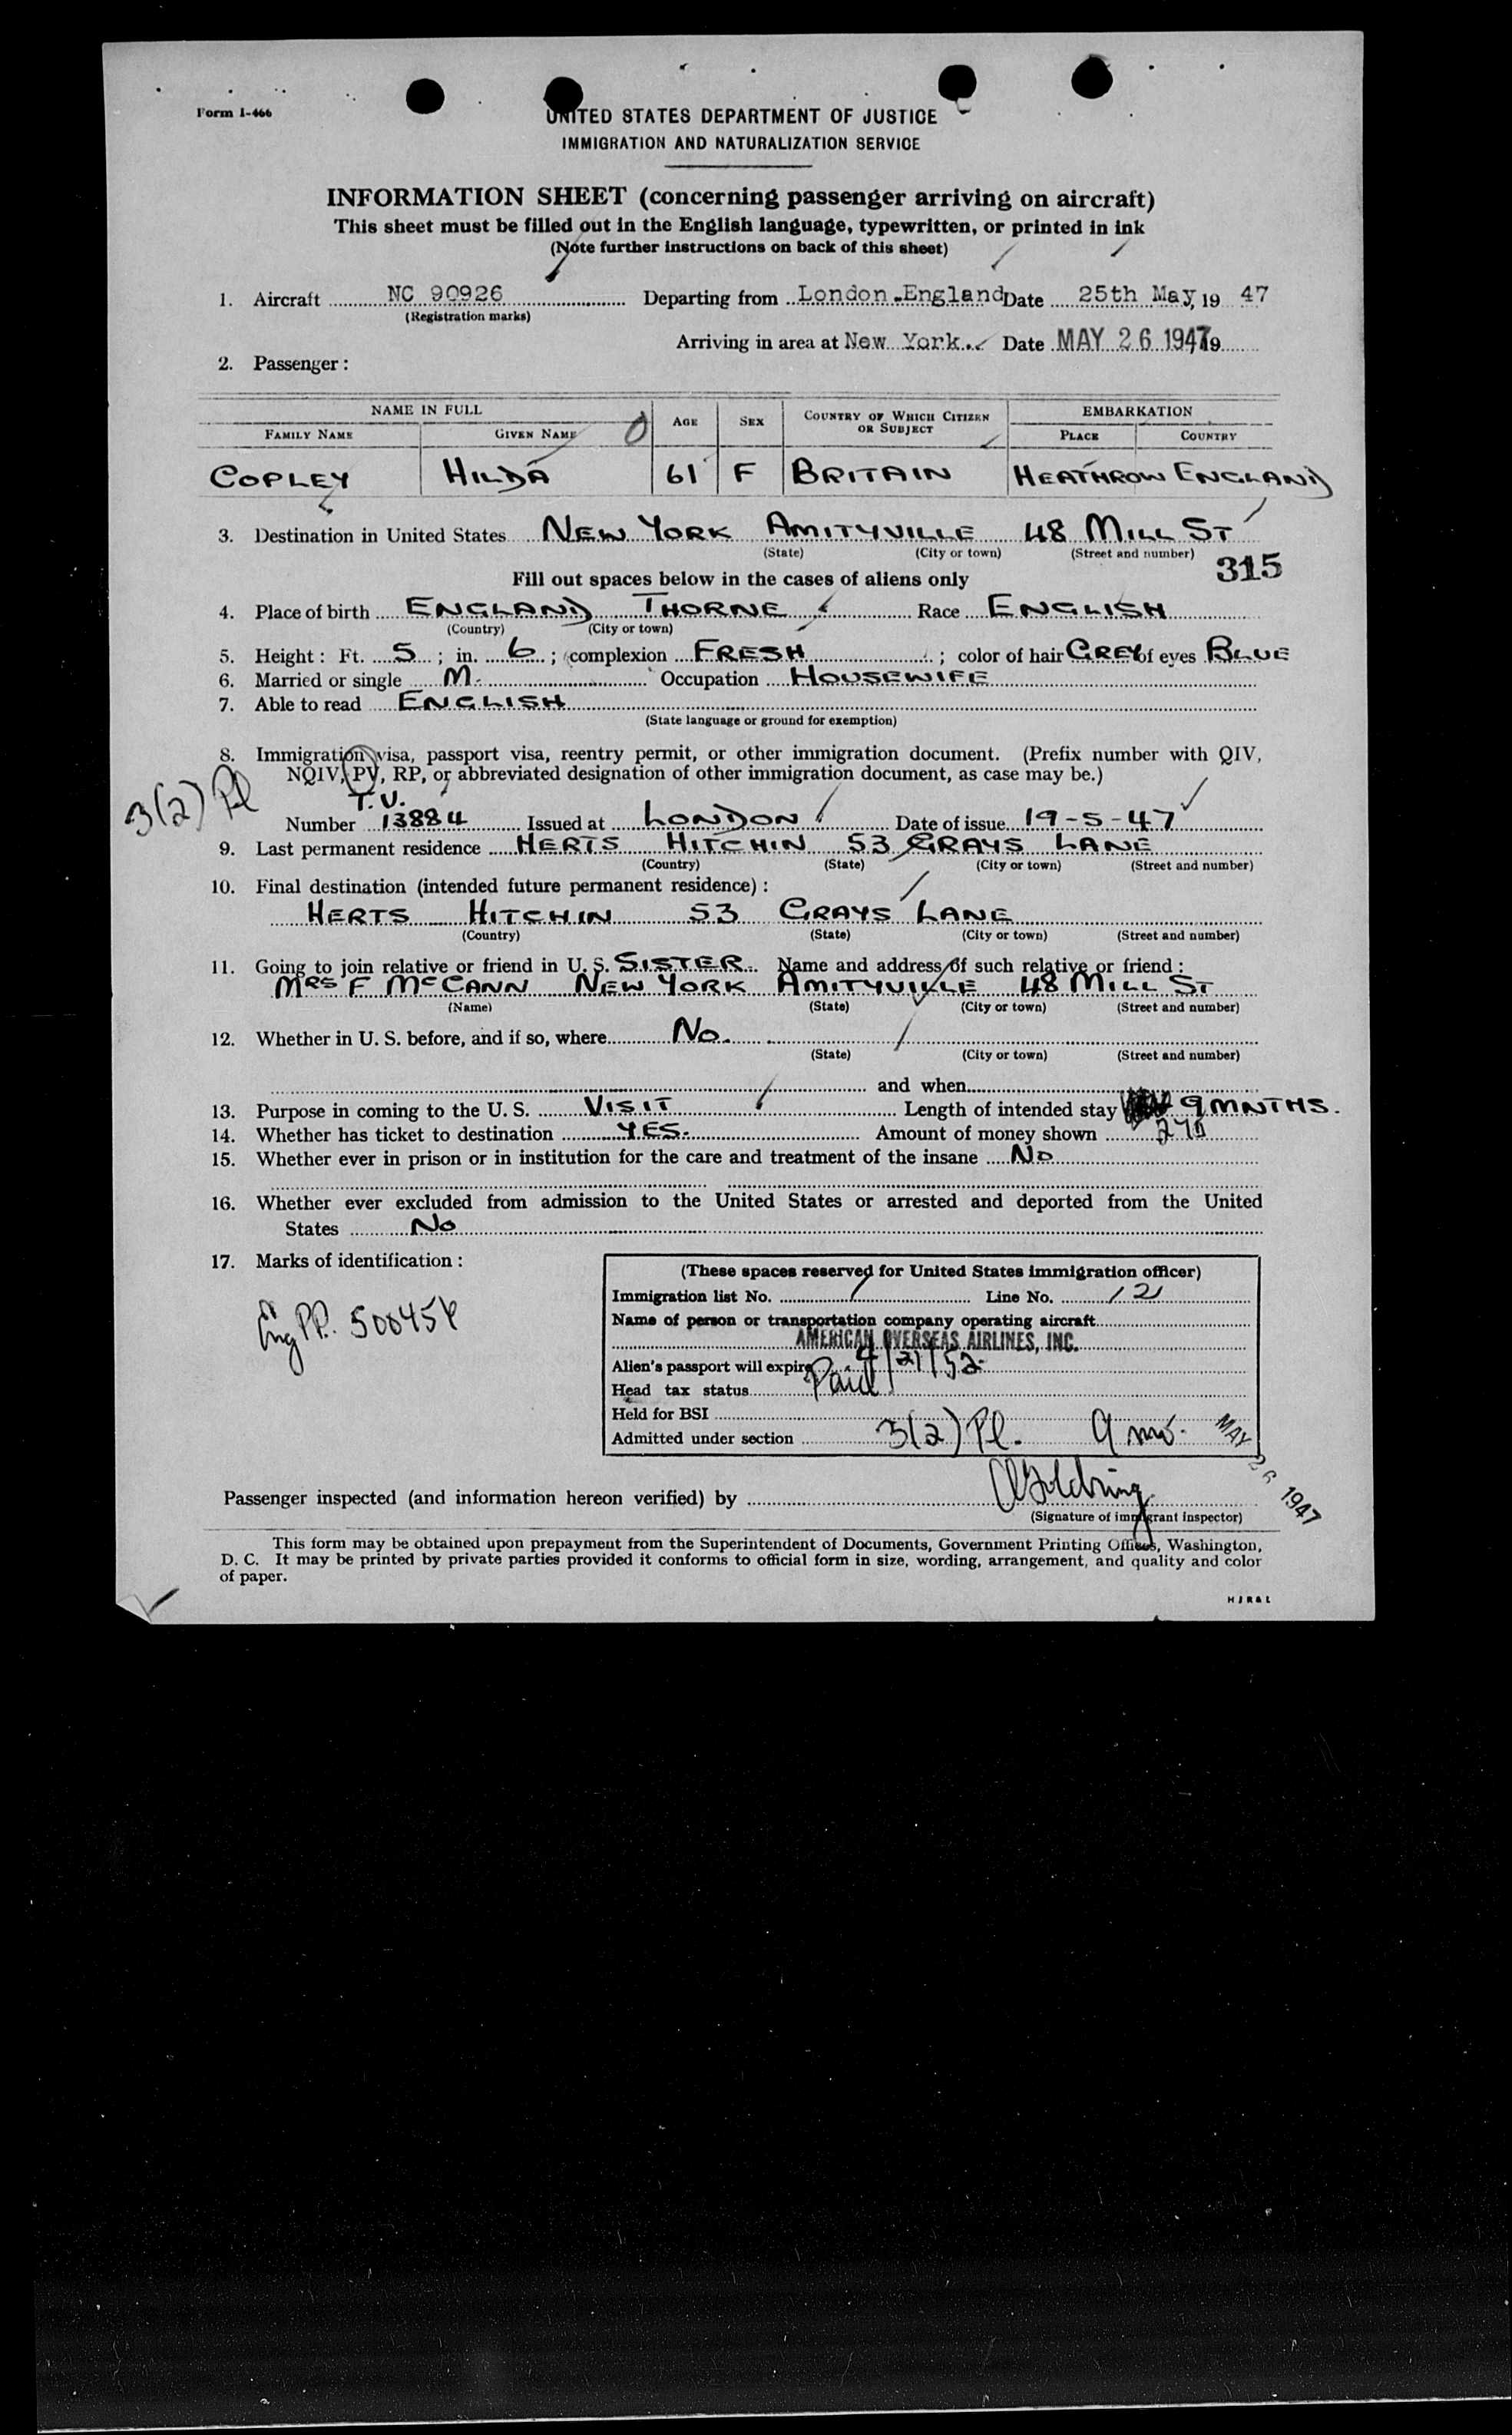 Form I-466
UNITED STATES DEPARTMENT OF JUSTICE
IMMIGRATION AND NATURALIZATION SERVICE
INFORMATION SHEET (concerning passenger arriving on aircraft)
This sheet must be filled out in the English language, typewritten, or printed in ink
(Note further instructions on back of this sheet)
1. Aircraft NC 90926 Departing from London.England Date 25th May, 19 47
(Registration marks)
Arriving in area at New York.. Date MAY 26 1947 19
2. Passenger:
NAME IN FULL AGE SEX COUNTRY OF WHICH CITIZEN OR SUBJECT EMBARKATION
FAMILY NAME GIVEN NAME PLACE COUNTRY
COPLEY HILDA 61 F BRITAIN HEATHROW ENGLAND
3. Destination in United States NEW YORK AMITYVILLE 48 MILL ST
(State) (City or town) (Street and number)
315
Fill out spaces below in the cases of aliens only
4. Place of birth ENGLAND THORNE Race ENGLISH
(Country) (City or town)
5. Height: Ft. 5; in. 6; complexion FRESH; color of hair GREY of eyes BLUE
6. Married or single M. Occupation HOUSEWIFE
7. Able to read ENGLISH
(State language or ground for exemption)
8. Immigration visa, passport visa, reentry permit, or other immigration document. (Prefix number with QIV,
NQIV, PV, RP, or abbreviated designation of other immigration document, as case may be.)
3(2) Pl
T.V.
Number 13884 Issued at LONDON Date of issue 19-5-47
9. Last permanent residence HERTS HITCHIN 53 GRAYS LANE
(Country) (State) (City or town) (Street and number)
10. Final destination (intended future permanent residence):
HERTS HITCHIN 53 GRAYS LANE
(Country) (State) (City or town) (Street and number)
11. Going to join relative or friend in U. S. SISTER. Name and address of such relative or friend:
MRS F MCCANN NEW YORK AMITYVILLE 48 MILL ST
(Name) (State) (City or town) (Street and number)
12. Whether in U. S. before, and if so, where NO.
(State) (City or town) (Street and number)
and when
13. Purpose in coming to the U. S. VISIT Length of intended stay 9 MNTHS.
14. Whether has ticket to destination YES. Amount of money shown
15. Whether ever in prison or in institution for the care and treatment of the insane NO
16. Whether ever excluded from admission to the United States or arrested and deported from the United
States NO
17. Marks of identification:
Eng PP. 500454
(These spaces reserved for United States immigration officer)
Immigration list No. 1 Line No. 12
Name of person or transportation company operating aircraft
AMERICAN OVERSEAS AIRLINES, INC.
Alien's passport will expire 4/21/52
Head tax status Paid
Held for BSI
Admitted under section 3(2) Pl. 9 mo.
MAY 26 1947
Passenger inspected (and information hereon verified) by
(Signature of immigrant inspector)
This form may be obtained upon prepayment from the Superintendent of Documents, Government Printing Office, Washington,
D. C. It may be printed by private parties provided it conforms to official form in size, wording, arrangement, and quality and color
of paper.
H J R & L